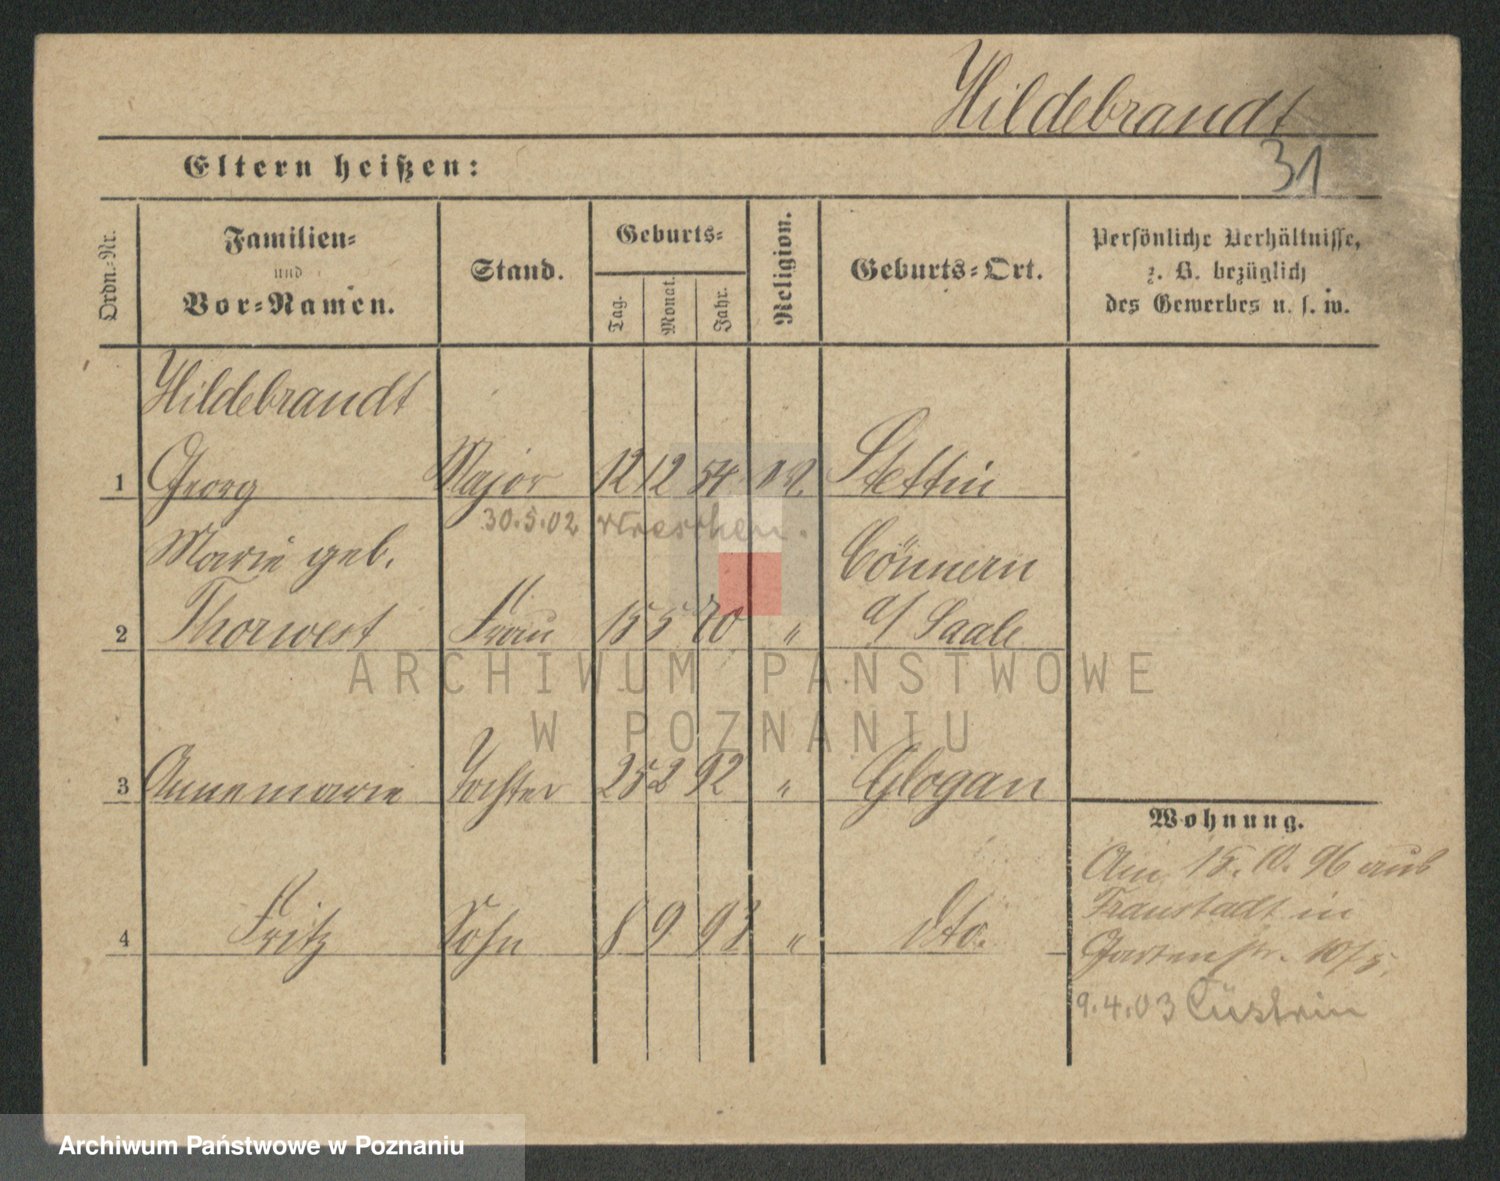 Hildebrandt
31
Eltern heißen:
Ordn.-Nr.
Familien-
und
Vor-Namen.
Stand.
Geburts-
Tag.
Monat.
Jahr.
Religion.
Geburts-Ort.
Persönliche Verhältnisse,
z. B. bezüglich
des Gewerbes u. s. w.
Hildebrandt
1 Georg Major 12 12 54 Stettin
30.5.02 Wreschen.
Marie geb. Cönnern
2 Thorwest Frau 15 5 70 " a/ Saale
3 Annemarie Tochter 25 2 92 " Glogau
4 Fritz Sohn 8 9 93 " dto.
Wohnung.
Am 15.10.96 aus
Fraustadt in
Gartenstr. 10/5.
9.4.03 Cüstrin
ARCHIWUM PAŃSTWOWE
W POZNANIU
Archiwum Państwowe w Poznaniu